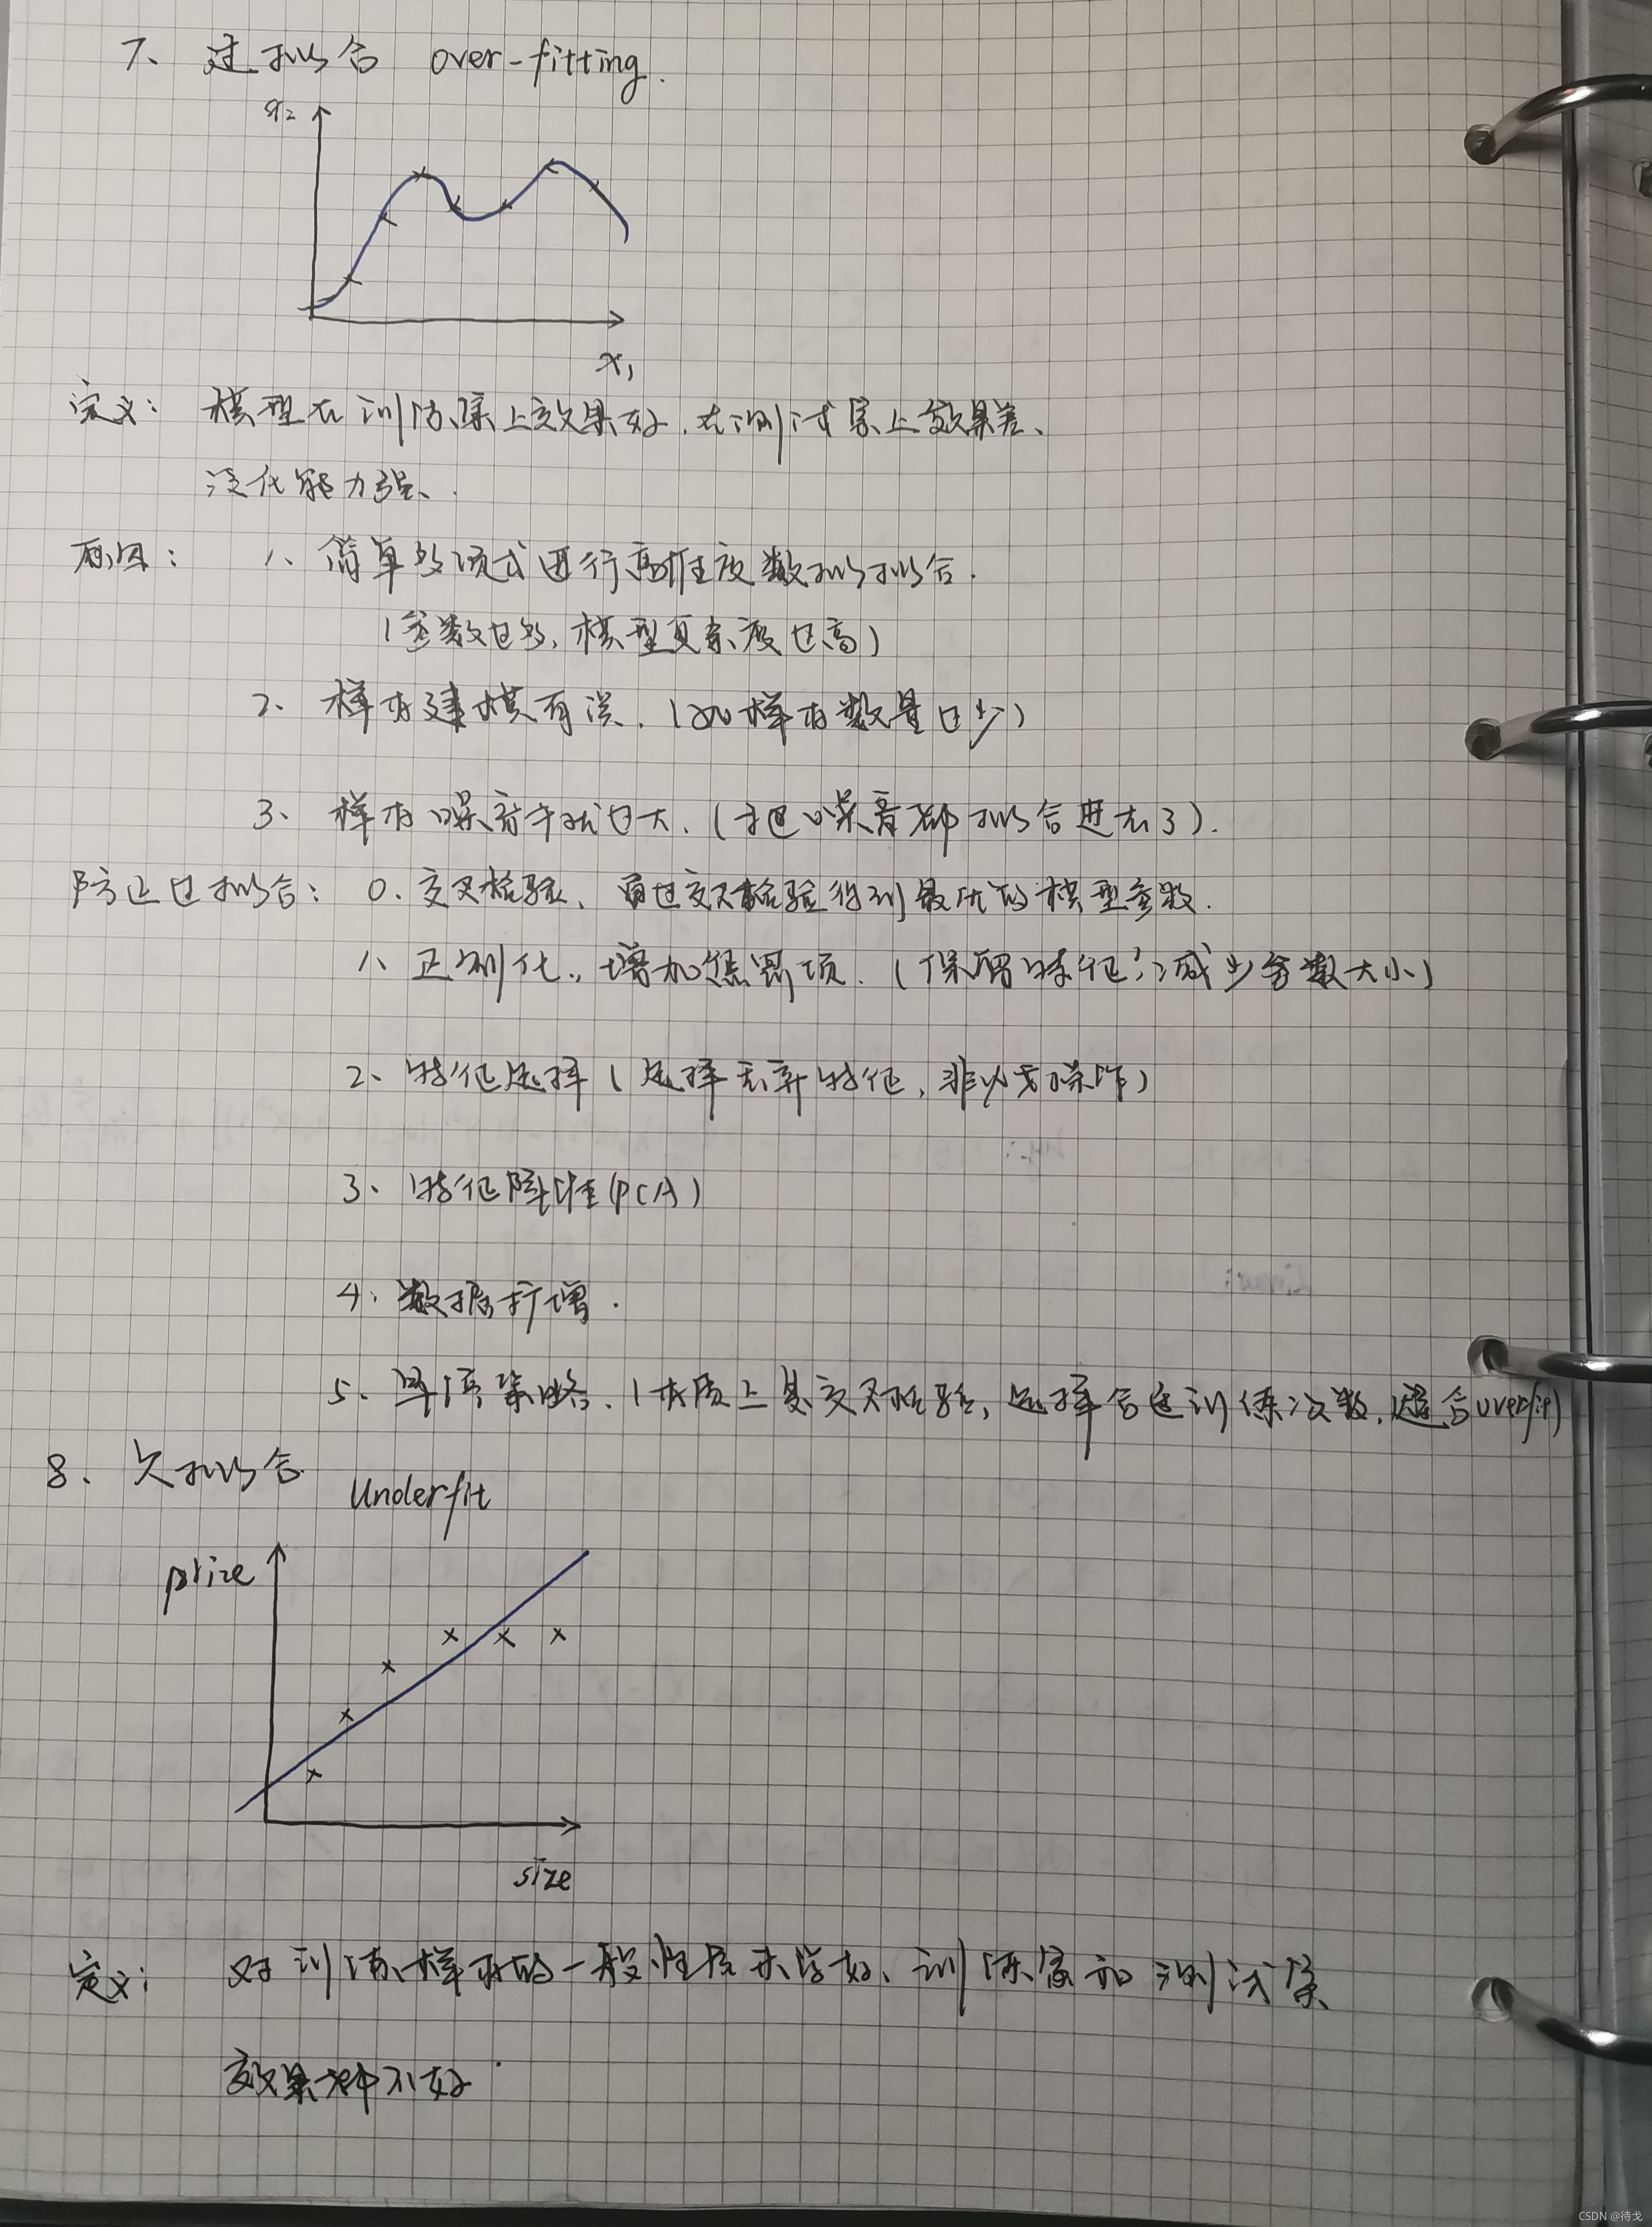 7、过拟合 over-fitting.
x₂
x₁
定义：模型在训练集上效果好，在测试集上效果差、
泛化能力强、.
原因： 1、简单多项式进行高维度数拟拟合.
(参数过多，模型复杂度过高)
2、样本建模有误. (如样本数量过少)
3、样本噪音干扰过大. (把噪音都拟合进去了).
防止过拟合： 0、交叉检验、通过交叉检验得到最优的模型参数.
1、正则化、增加惩罚项. (保留特征，减少参数大小)
2、特征选择 (选择丢弃特征，非必要操作)
3、特征降维(PCA)
4、数据新增.
5、早停策略. (本质上是交叉检验，选择合适训练次数，避合overfit)
8、欠拟合 Underfit
prize
size
定义： 对训练样本的一般性质未学好、训练集和测试集
效果都不好.
CSDN @待戈